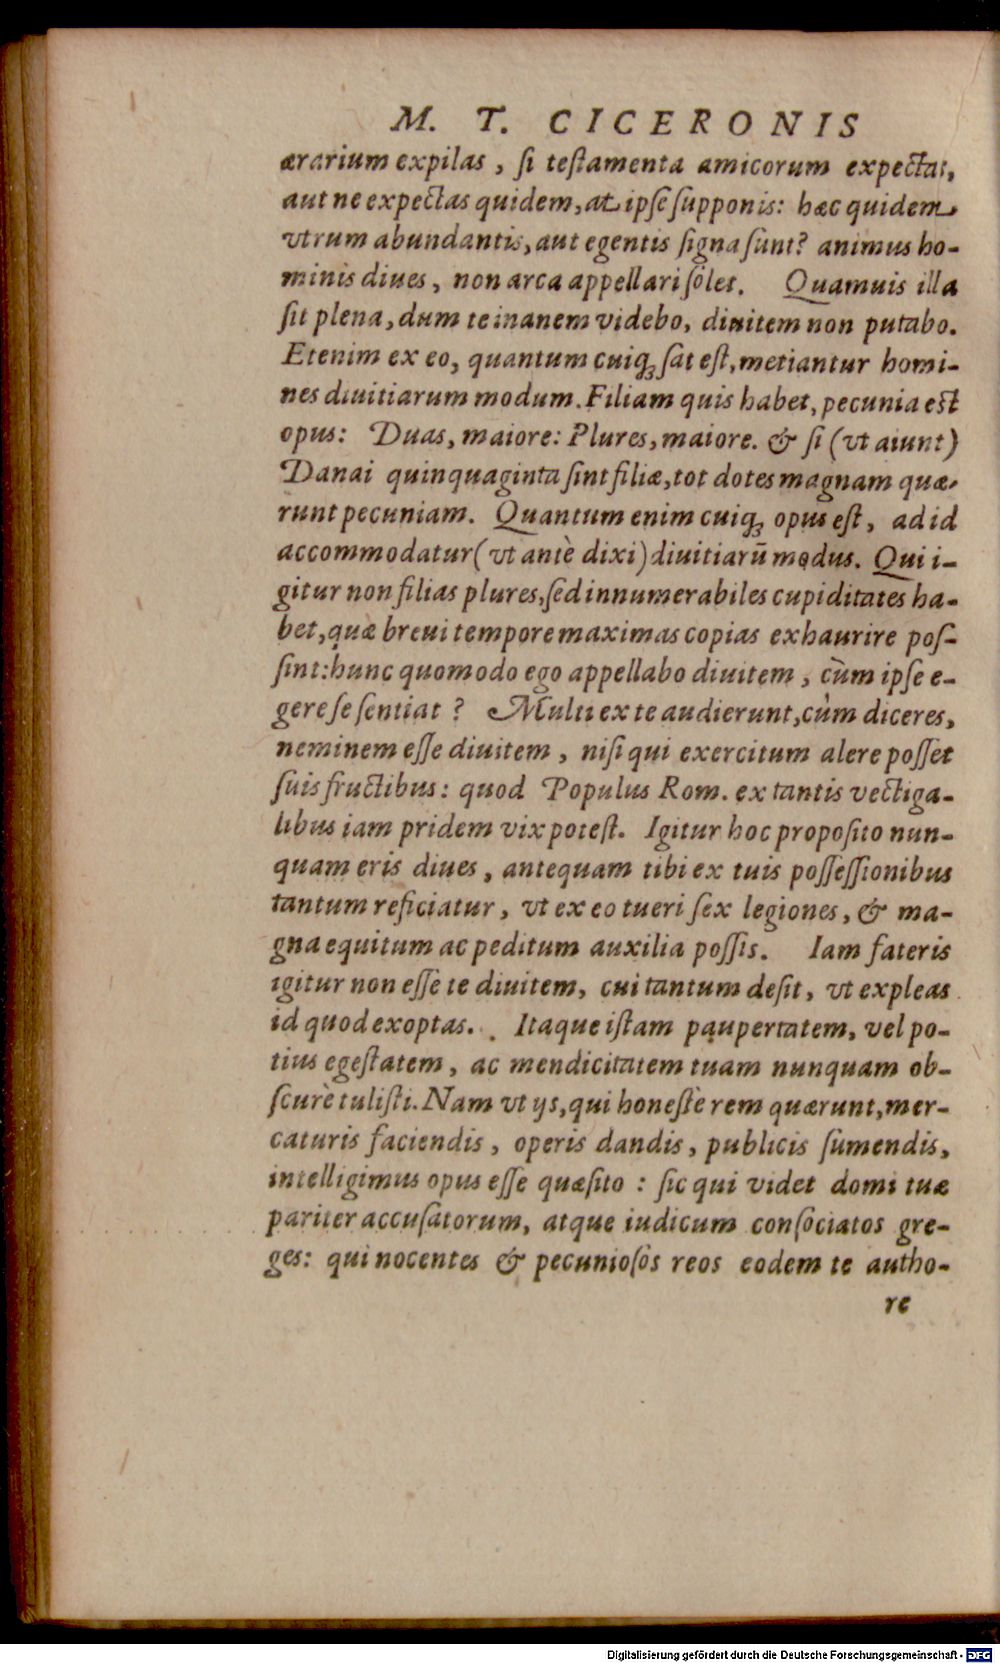 M. T. CICERONIS
ærarium expilas, ſi teſtamenta amicorum expectas,
aut ne expectas quidem, at ipſe ſupponis: hæc quidem
vtrum abundantis, aut egentis ſigna ſunt? animus ho-
minis diues, non arca appellari ſolet. Quamuis illa
ſit plena, dum te inanem videbo, diuitem non putabo.
Etenim ex eo, quantum cuiqꝫ ſat eſt, metiantur homi-
nes diuitiarum modum. Filiam quis habet, pecunia est
opus: Duas, maiore: Plures, maiore. & ſi (vt aiunt)
Danai quinquaginta ſint filiæ, tot dotes magnam quæ-
runt pecuniam. Quantum enim cuiqꝫ opus eſt, ad id
accommodatur (vt antè dixi) diuitiarū modus. Qui i-
gitur non filias plures, ſed innumerabiles cupiditates ha-
bet, quæ breui tempore maximas copias exhaurire poſ-
ſint: hunc quomodo ego appellabo diuitem, cùm ipſe e-
gere ſe ſentiat? Multi ex te audierunt, cùm diceres,
neminem eſſe diuitem, niſi qui exercitum alere poſſet
ſuis fructibus: quod Populus Rom. ex tantis vectiga-
libus iam pridem vix poteſt. Igitur hoc propoſito nun-
quam eris diues, antequam tibi ex tuis poſſeſſionibus
tantum reficiatur, vt ex eo tueri ſex legiones, & ma-
gna equitum ac peditum auxilia poſſis. Iam fateris
igitur non eſſe te diuitem, cui tantum deſit, vt expleas
id quod exoptas. Itaque iſtam paupertatem, vel po-
tius egeſtatem, ac mendicitatem tuam nunquam ob-
ſcurè tuliſti. Nam vt ijs, qui honeſtè rem quærunt, mer-
caturis faciendis, operis dandis, publicis ſumendis,
intelligimus opus eſſe quæſito: ſic qui videt domi tuæ
pariter accuſatorum, atque iudicum conſociatos gre-
ges: qui nocentes & pecunioſos reos eodem te autho-
re
Digitalisierung gefördert durch die Deutsche Forschungsgemeinschaft - DFG